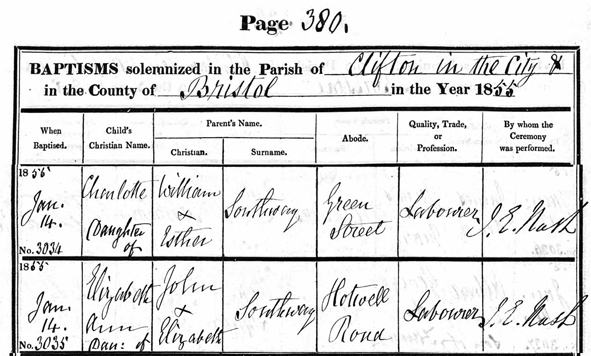 Page 380.
BAPTISMS solemnized in the Parish of Clifton in the City &
in the County of Bristol in the Year 1855
When Baptised. Child's Christian Name. Parent's Name. Abode. Quality, Trade, or Profession. By whom the Ceremony was performed.
Christian. Surname.
1855
Jan. 14.
No. 3034
Charlotte
Daughter of
William
&
Esther
Southway
Green
Street
Labourer
J. E. Nash
1855
Jan. 14.
No. 3035
Elizabeth
Ann
Dau: of
John
&
Elizabeth
Southway
Hotwell
Road
Labourer
J. E. Nash